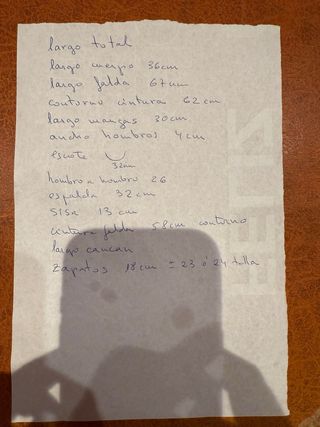 largo total
largo cuerpo 36cm
largo falda 67cm
contorno cintura 62cm
largo mangas 30cm
ancho hombros 4cm
escote
32cm
hombro a hombro 26
espalda 32cm
SISA 13cm
cintura falda 58cm contorno
largo cancan
Zapatos 18cm = 23 ó 24 talla